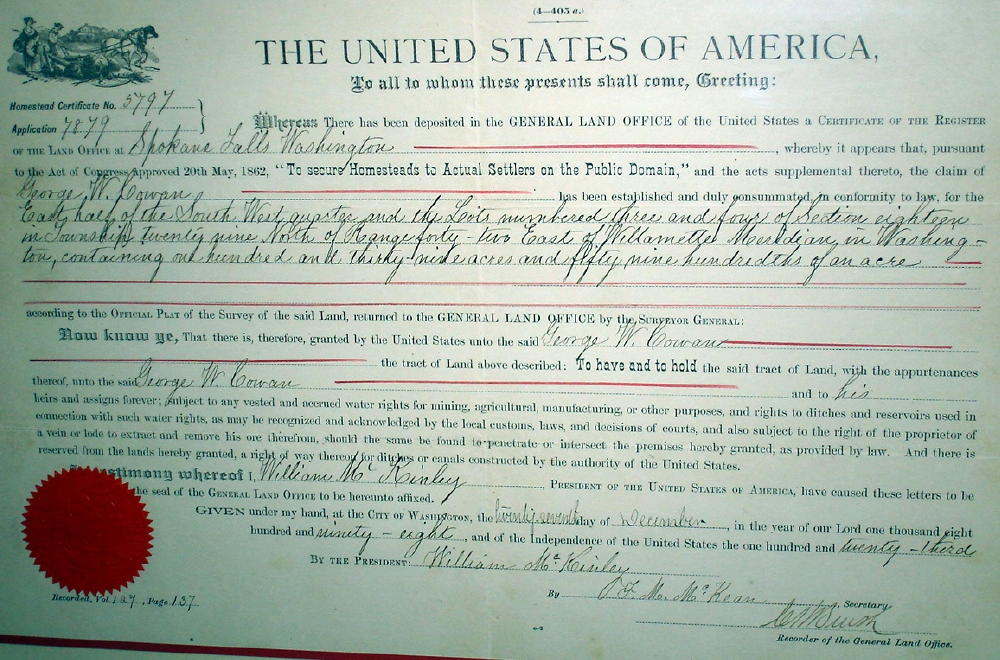 (4—403 a.)
THE UNITED STATES OF AMERICA,
To all to whom these presents shall come, Greeting:
Homestead Certificate No. 5797
Application 7879
Whereas There has been deposited in the GENERAL LAND OFFICE of the United States a CERTIFICATE OF THE REGISTER
OF THE LAND OFFICE AT Spokane Falls Washington, whereby it appears that, pursuant
to the Act of Congress approved 20th May, 1862, "To secure Homesteads to Actual Settlers on the Public Domain," and the acts supplemental thereto, the claim of
George W. Cowan has been established and duly consummated, in conformity to law, for the
East half of the South West quarter and the Lots numbered three and four of Section eighteen
in Township twenty nine North of Range forty-two East of Willamette Meridian, in Washing-
ton, containing one hundred and thirty nine acres and fifty nine hundredths of an acre
according to the OFFICIAL PLAT of the Survey of the said Land, returned to the GENERAL LAND OFFICE by the SURVEYOR GENERAL:
Now know ye, That there is, therefore, granted by the United States unto the said George W. Cowan
the tract of Land above described: To have and to hold the said tract of Land, with the appurtenances
thereof, unto the said George W. Cowan and to his
heirs and assigns forever; subject to any vested and accrued water rights for mining, agricultural, manufacturing, or other purposes, and rights to ditches and reservoirs used in
connection with such water rights, as may be recognized and acknowledged by the local customs, laws, and decisions of courts, and also subject to the right of the proprietor of
a vein or lode to extract and remove his ore therefrom, should the same be found to penetrate or intersect the premises hereby granted, as provided by law. And there is
reserved from the lands hereby granted, a right of way thereon for ditches or canals constructed by the authority of the United States.
testimony whereof I, William McKinley PRESIDENT OF THE UNITED STATES OF AMERICA, have caused these letters to be
the seal of the GENERAL LAND OFFICE to be hereunto affixed.
GIVEN under my hand, at the CITY OF WASHINGTON, the twenty seventh day of December, in the year of our Lord one thousand eight
hundred and ninety-eight, and of the Independence of the United States the one hundred and twenty-third
BY THE PRESIDENT: William McKinley
By F. M. McKean, Secretary
Recorded, Vol. 127, Page 137
Recorder of the General Land Office.